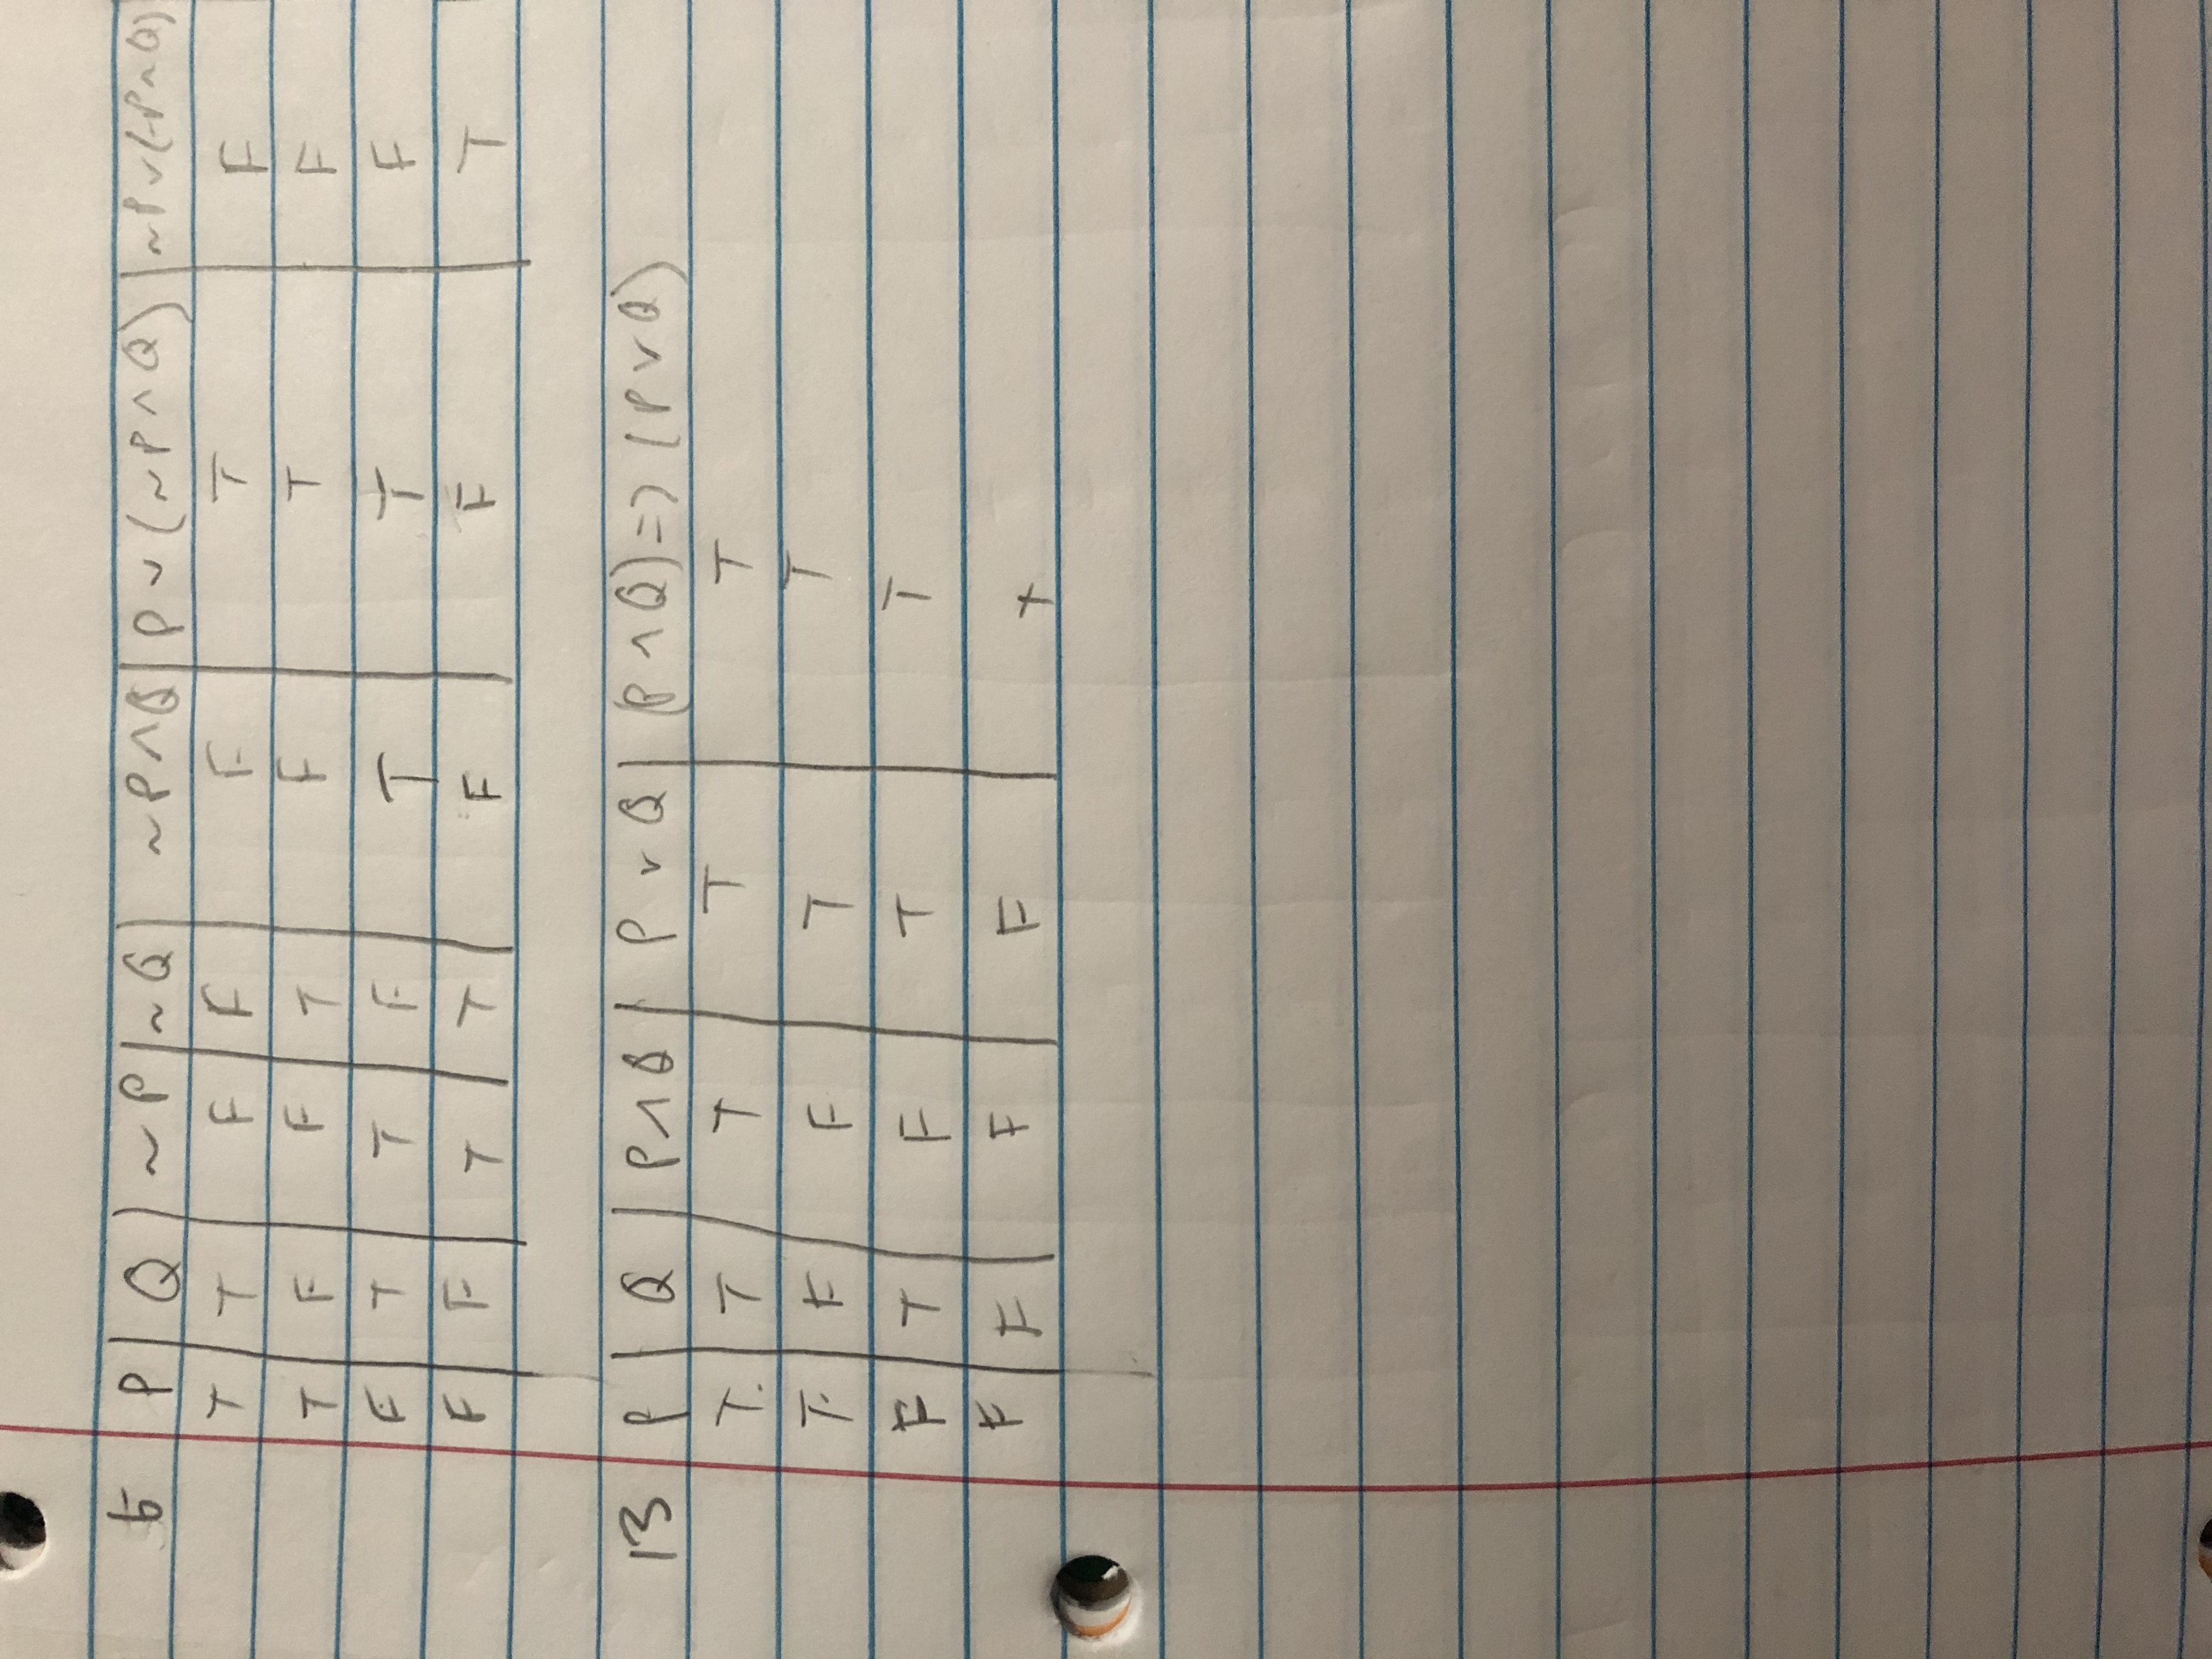 5 P Q ~P ~Q ~P∧Q P∨(~P∧Q) ~P∨(~P∧Q)
T T F F F T F
T F F T F T F
F T T F T T F
F F T T F F T
13 P Q P∧Q P∨Q (P∧Q)=>(P∨Q)
T. T T T T
T F F T T
F T F T T
F F F F T